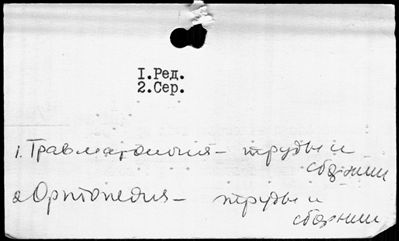 I.Ред.
2.Сер.
1. Травматология – труды и
сборники
2. Ортопедия – труды и
сборники